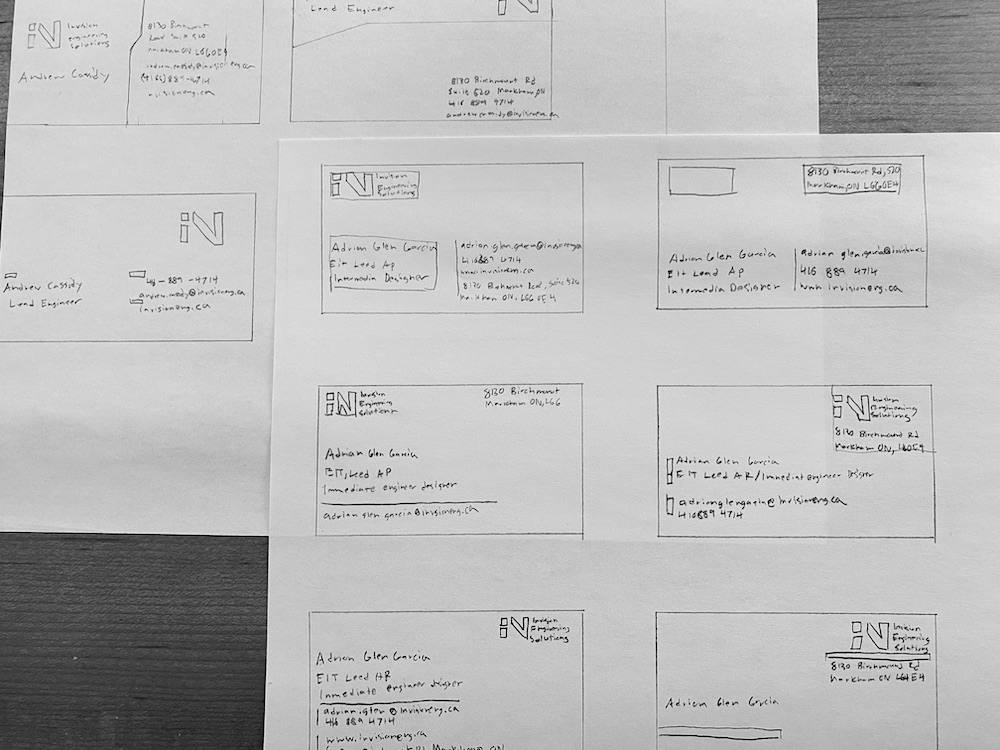 iN Invision
Engineering
Solutions
Andrew Cassidy
8130 Birchmount
Road Suite 520
Markham ON L6G0E4
(416) 889-4714
invisioneng.ca
Lead Engineer
iN
8130 Birchmount Rd
Suite 520 Markham, ON
416 889 4714
andrew.cassidy@invisioneng.ca
iN
Andrew Cassidy
Lead Engineer
-889-4714
invisioneng.ca
iN Invision
Engineering
Solutions
Adrian Glen Garcia
EIT Leed Ap
Intermedia Designer
416 889 4714
8130 Birchmount Road, Suite 520
Markham ON, L6G 0E4
8130 Birchmount Rd, 520
Markham, ON L6G0E4
Adrian Glen Garcia
EIT Leed Ap
Intermedia Designer
416 889 4714
www.invisioneng.ca
iN Invision
Engineering
Solutions
8130 Birchmount
Markham ON, L6G
Adrian Glen Garcia
EIT, Leed AP
Immediate engineer designer
adrian.glen.garcia@invisioneng.ca
iN Invision
Engineering
Solutions
8130 Birchmount Rd
Markham ON, L6G0E4
Adrian Glen Garcia
EIT Leed AP/Immediat engineer Designer
adrianglengarcia@invisioneng.ca
416 889 4714
iN Invision
Engineering
Solutions
Adrian Glen Garcia
EIT Leed AP
Immediate engineer designer
adrian.glen@invisioneng.ca
416 889 4714
www.invisioneng.ca
iN Invision
Engineering
Solutions
8130 Birchmount Rd
Markham ON L6G0E4
Adrian Glen Garcia